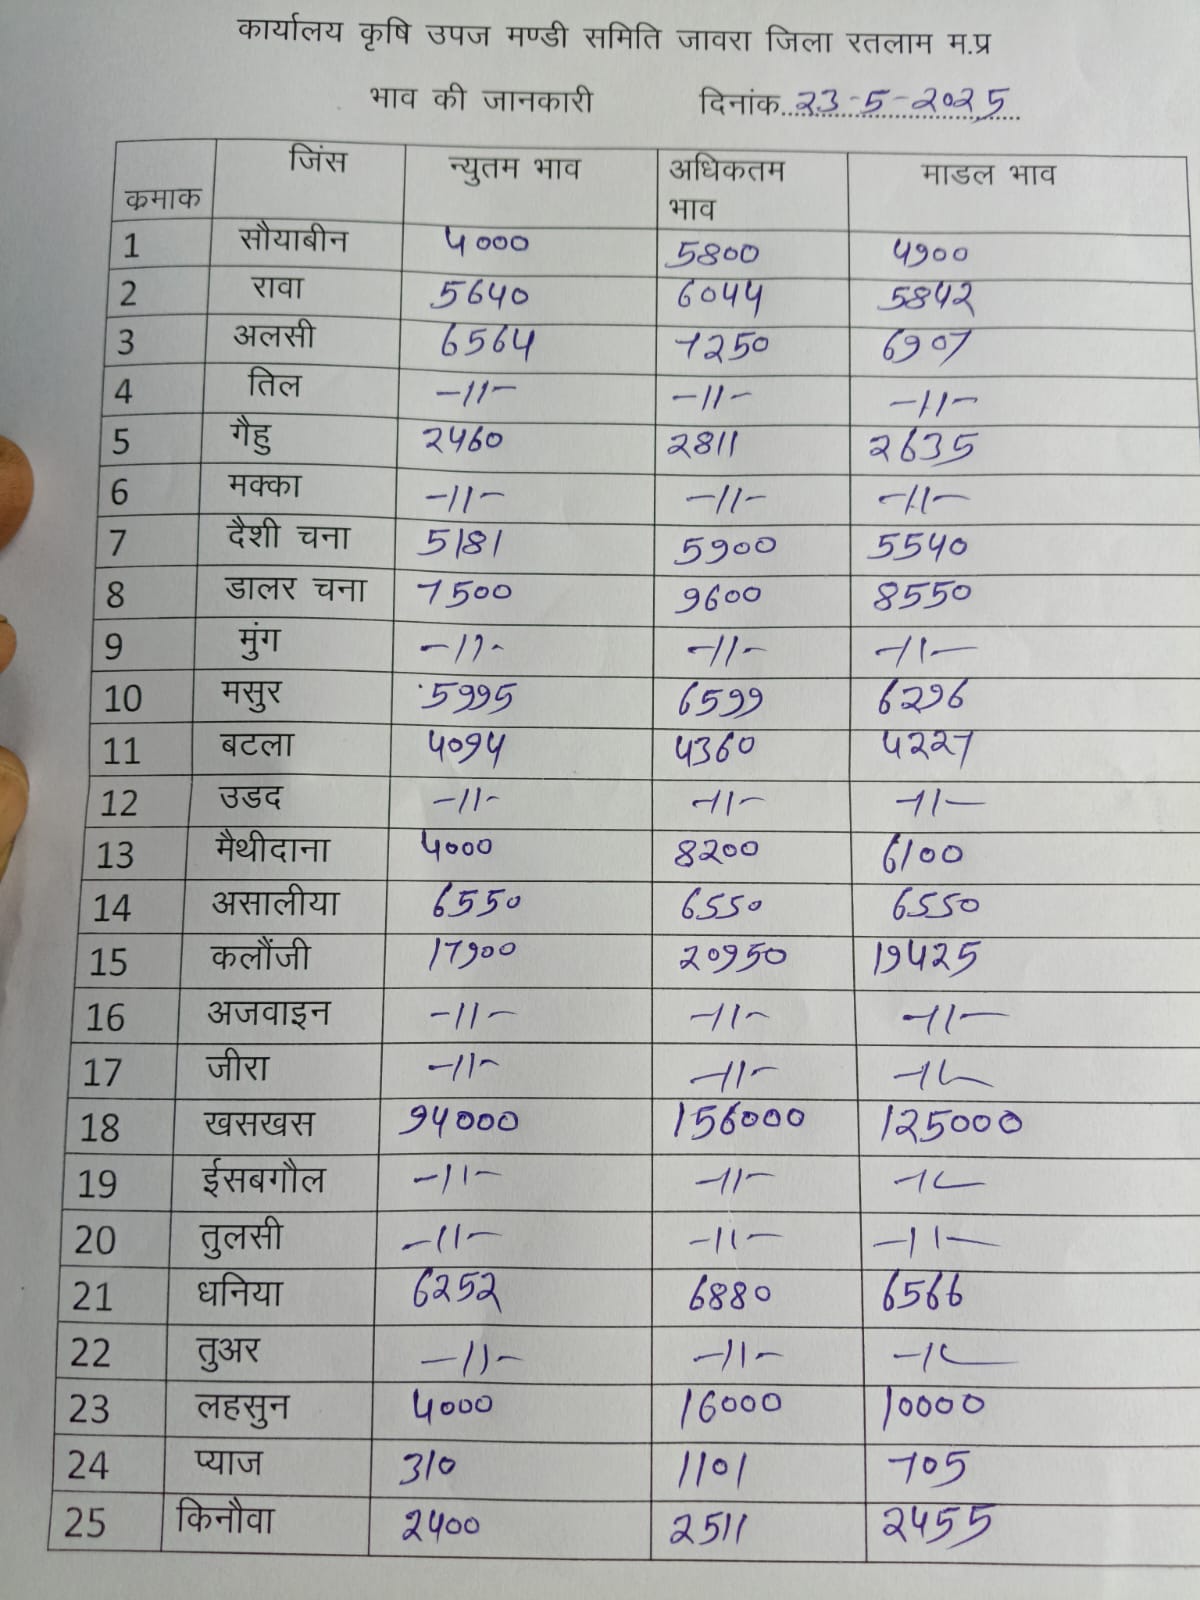 कार्यालय कृषि उपज मण्डी समिति जावरा जिला रतलाम म.प्र
भाव की जानकारी दिनांक 23-5-2025
कमाक जिंस न्युतम भाव अधिकतम भाव माडल भाव
1 सौयाबीन 4000 5800 4900
2 रावा 5640 6044 5842
3 अलसी 6564 7250 6907
4 तिल -11- -11- -11-
5 गैहु 2460 2811 2635
6 मक्का -11- -11- -11-
7 दैशी चना 5181 5900 5540
8 डालर चना 7500 9600 8550
9 मुंग -11- -11- -11-
10 मसुर 5995 6599 6296
11 बटला 4094 4360 4227
12 उडद -11- -11- -11-
13 मैथीदाना 4000 8200 6100
14 असालीया 6550 6550 6550
15 कलौंजी 17900 20950 19425
16 अजवाइन -11- -11- -11-
17 जीरा -11- -11- -11-
18 खसखस 94000 156000 125000
19 ईसबगौल -11- -11- -11-
20 तुलसी -11- -11- -11-
21 धनिया 6252 6880 6566
22 तुअर -11- -11- -11-
23 लहसुन 4000 16000 10000
24 प्याज 310 1101 705
25 किनौवा 2400 2511 2455